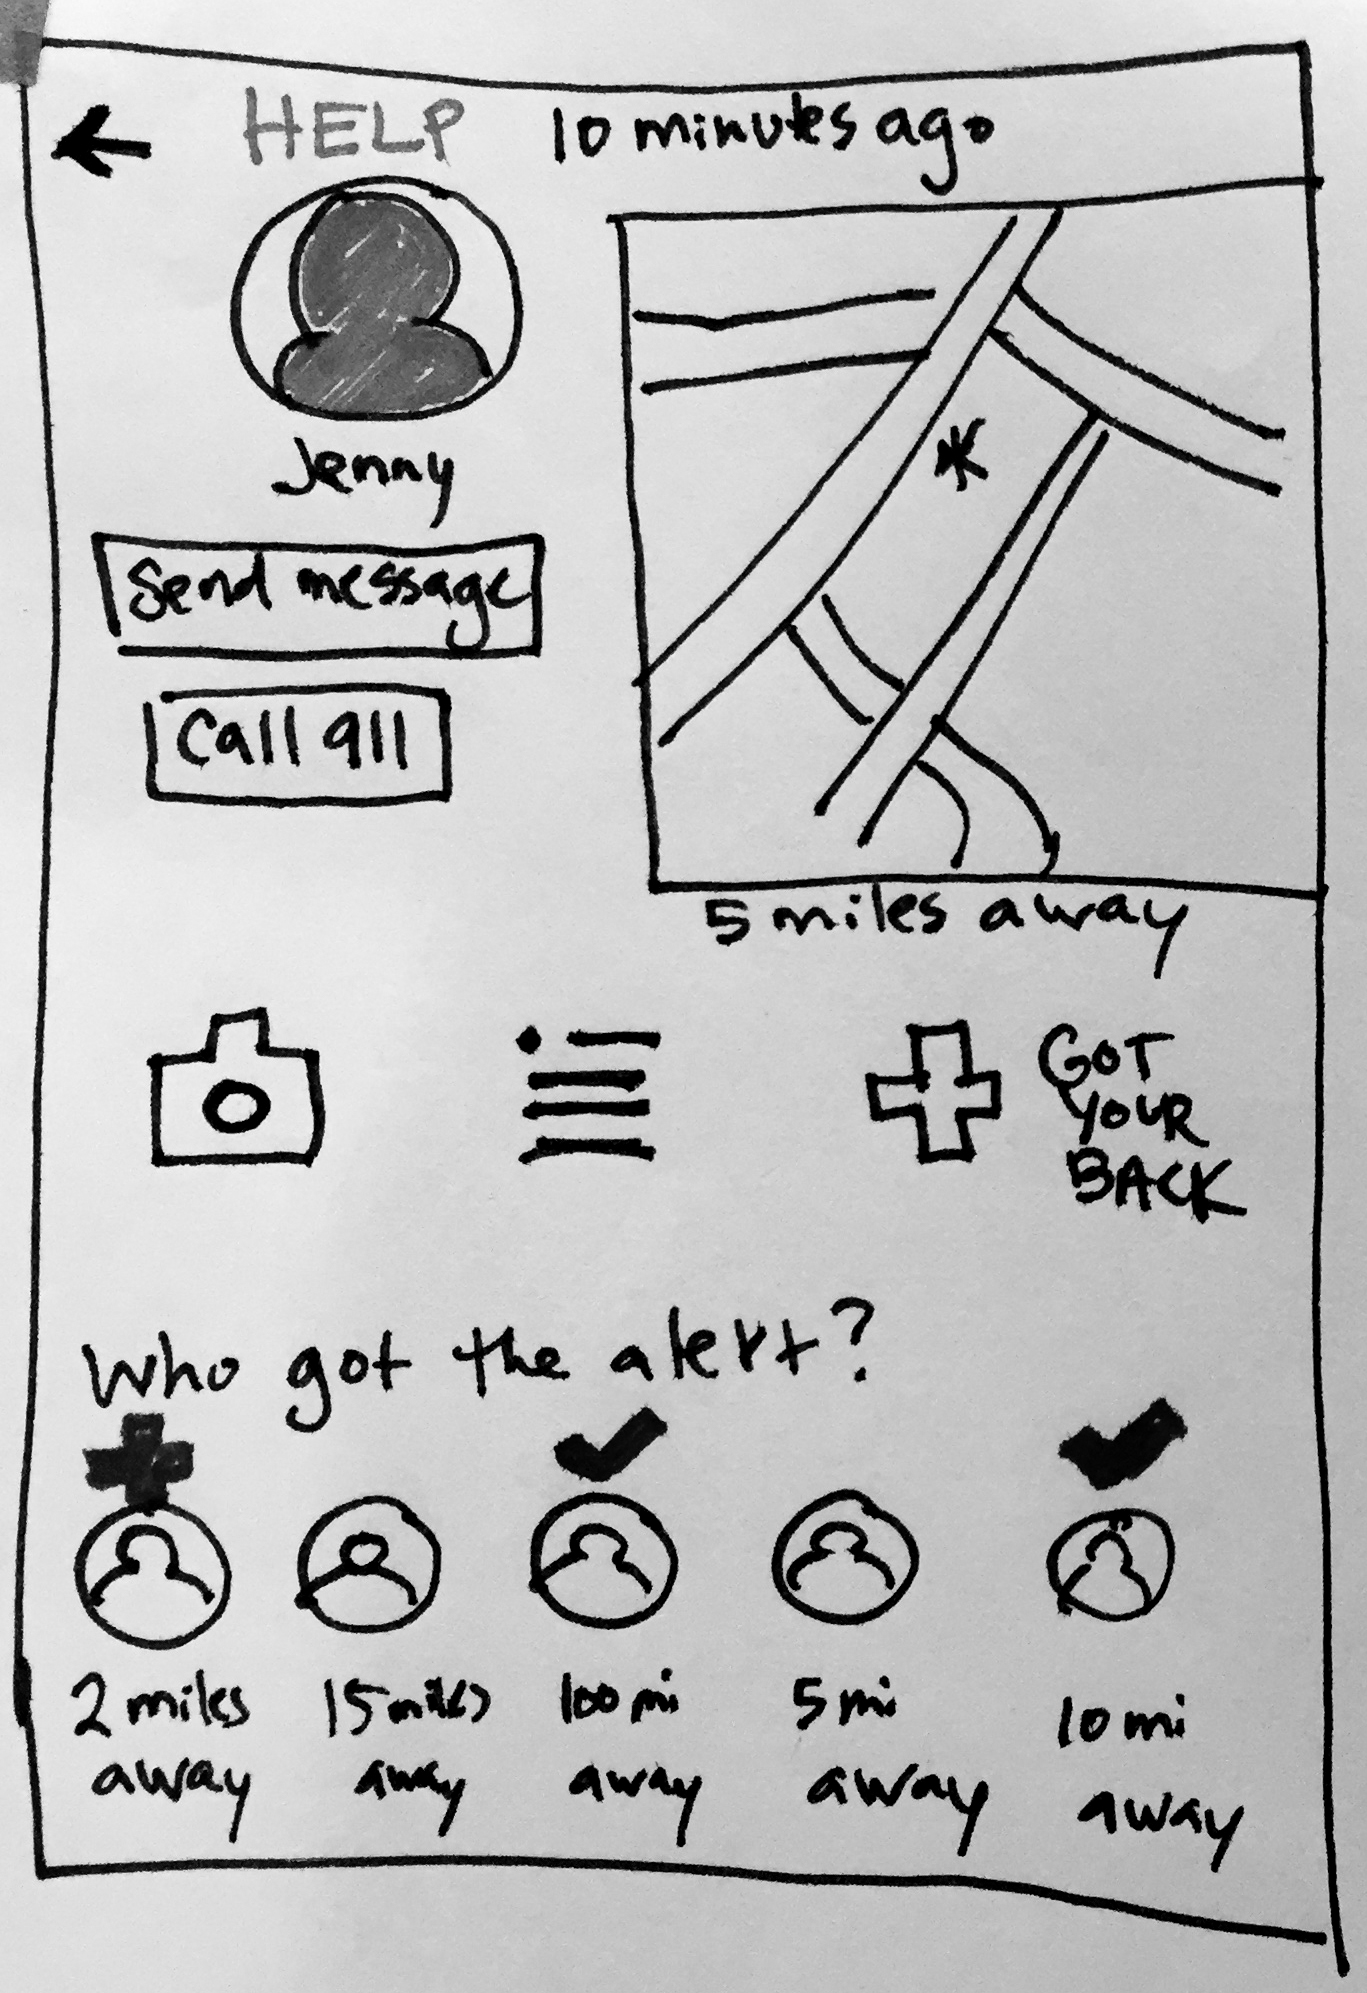 HELP 10 minutes ago
Jenny
Send message
Call 911
5 miles away
GOT
YOUR
BACK
Who got the alert?
2 miles
away
15 miles
away
100 mi
away
5 mi
away
10 mi
away